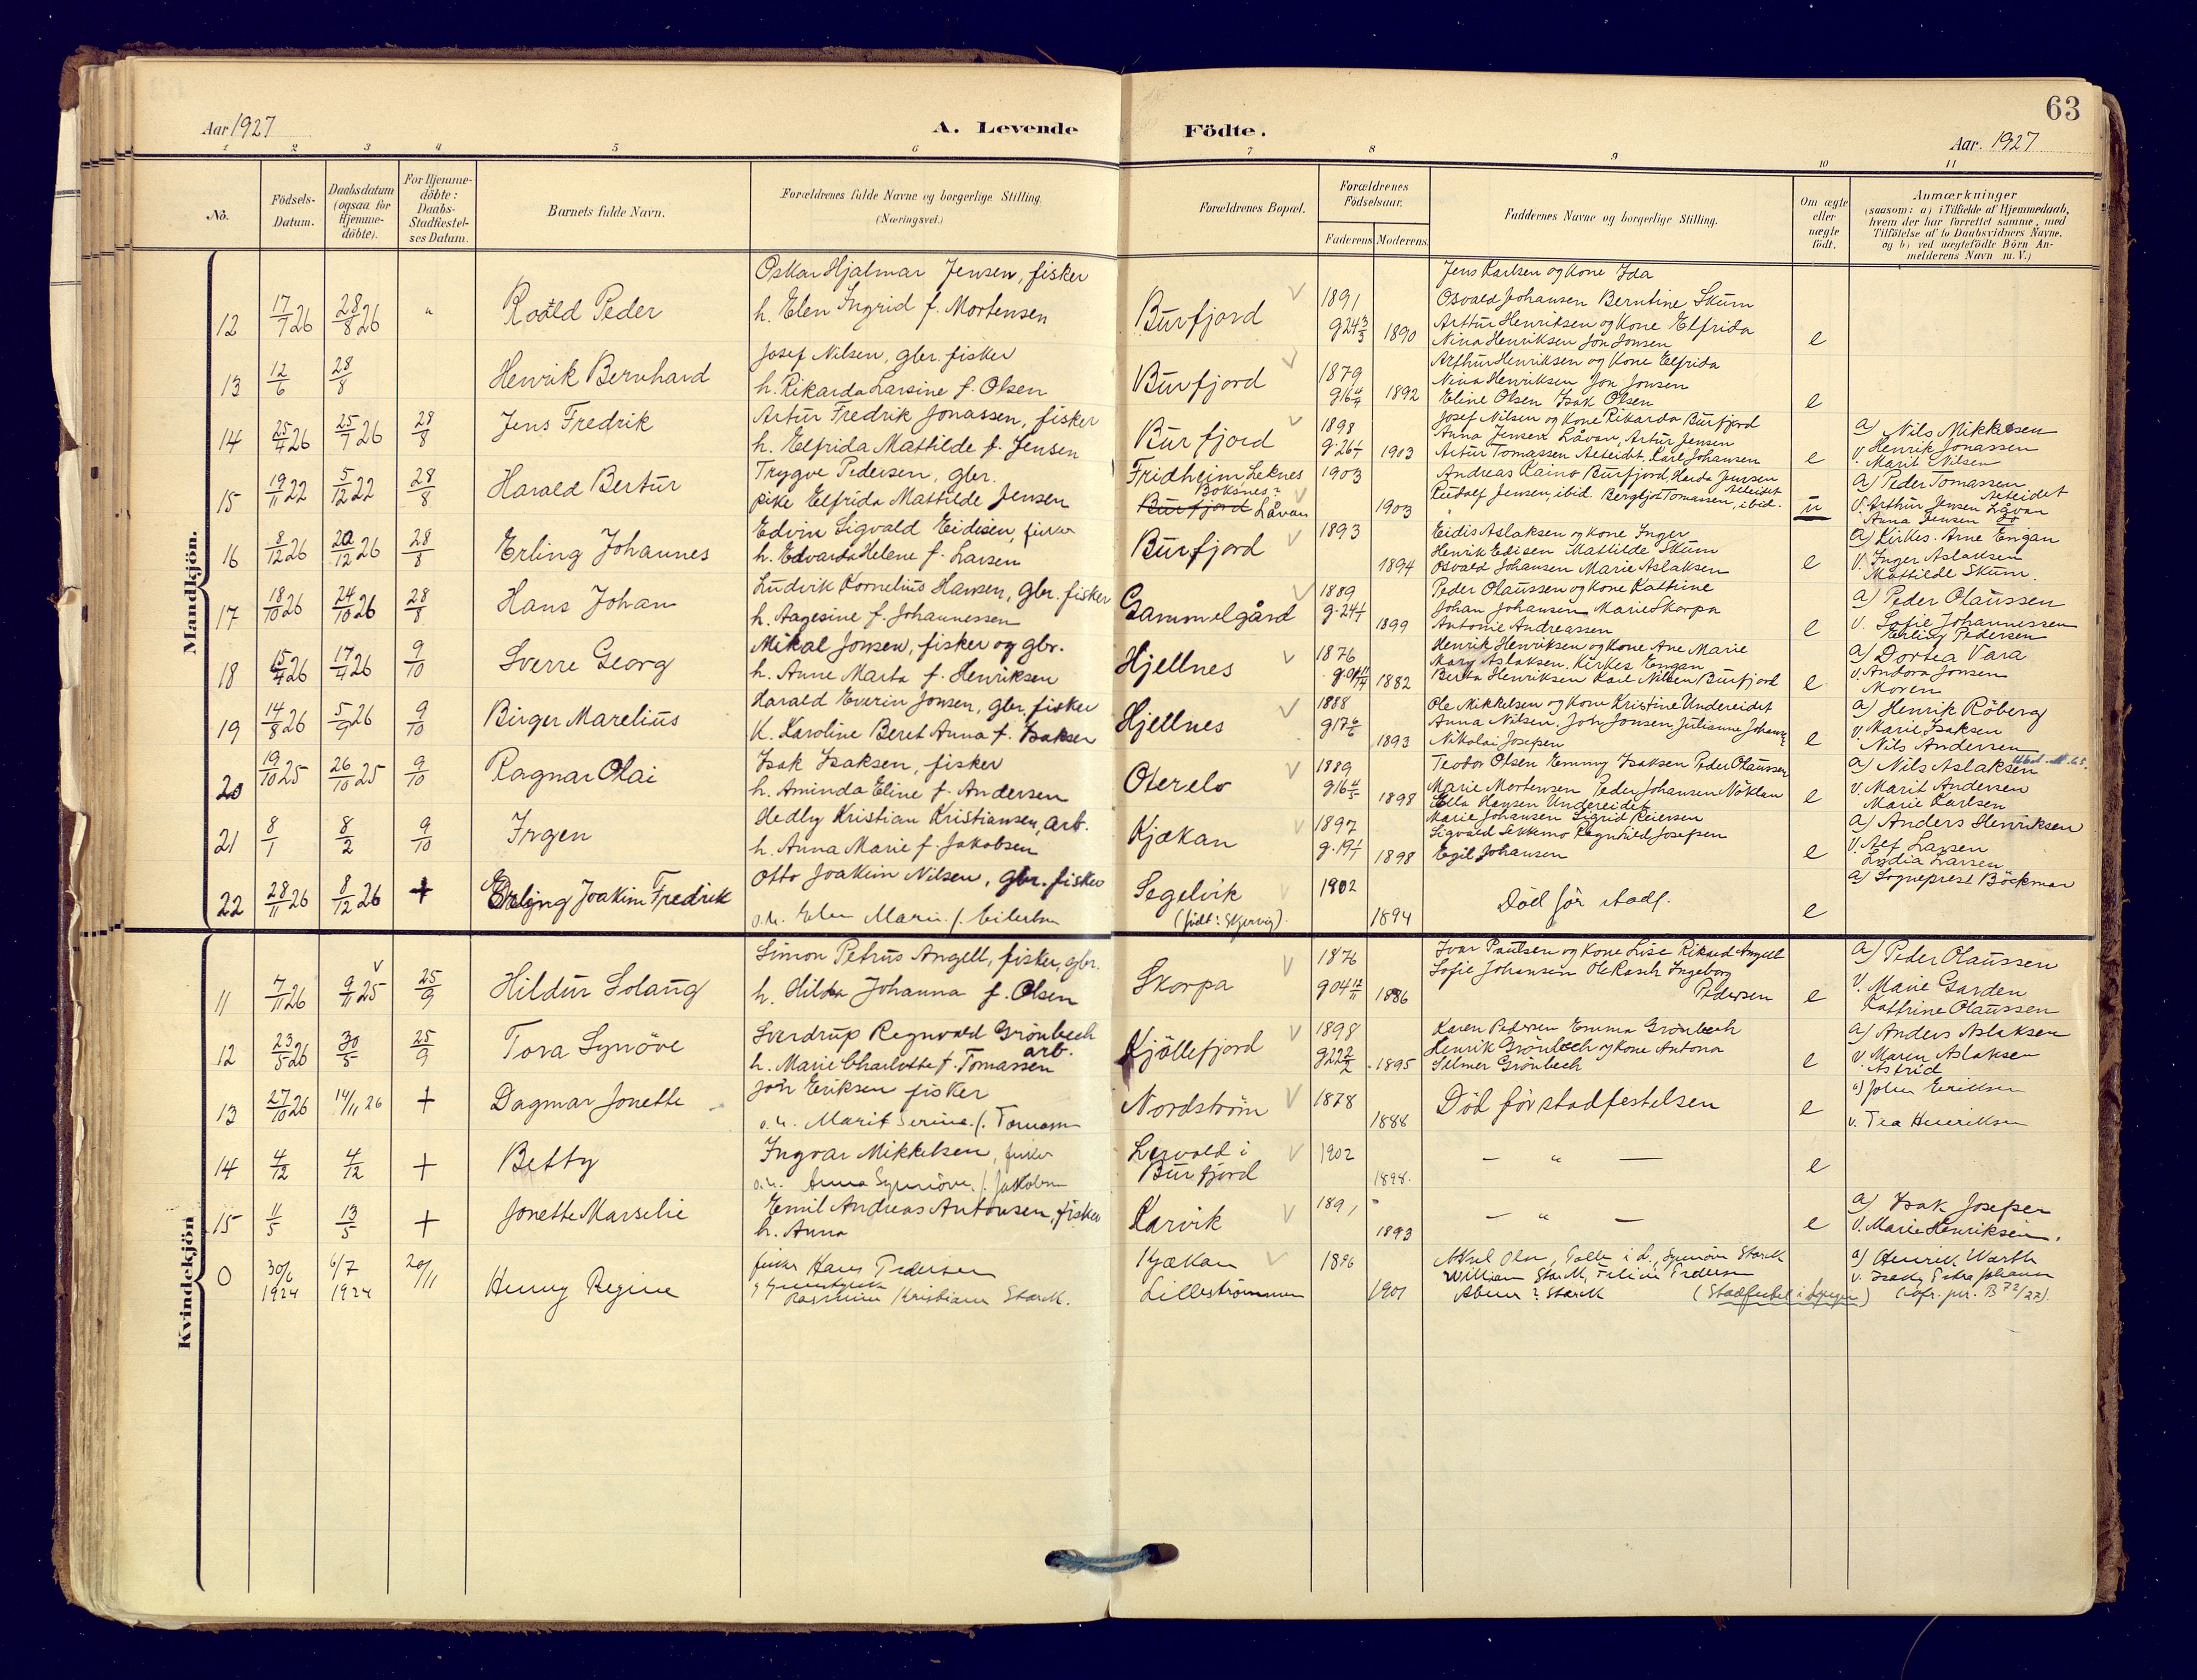 63
Aar 1927
A. Levende
Födte.
Aar. 1927
1 2 3 4 5 6 7 8 9 10 11
No.
Födsels-
Datum.
Daabsdatum
(ogsaa for
Hjemme-
döbte).
For Hjemme-
döbte:
Daabs-
Stadfæstel-
ses Datum.
Barnets fulde Navn.
Forældrenes fulde Navne og borgerlige Stilling.
(Næringsvei.)
Forældrenes Bopæl.
Forældrenes
Födselsaar.
Faderens Moderens
Faddernes Navne og borgerlige Stilling.
Om ægte
eller
uægte
födt.
Anmærkninger
(saasom: a) i Tilfælde af Hjemmedaab,
hvem der har forrettet samme, med
Tilföielse af to Daabsvidners Navne.
og b) ved uægtefödte Börn An-
melderens Navn m. V.)
Mandkjön.
12 17/7 26 28/8 26 " Roald Peder
Oskar Hjalmar Jensen, fisker
h. Elen Ingrid f. Mortensen
Burfjord 1891 g24 3/3 1890
Jens Karlsen og kone Ida
Osvald Johansen Berntine Skum
Arttur Henriksen og kone Elfrida
Nina Henriksen Jon Jonsen
e
13 12/6 28/8 Henrik Bernhard
Josef Nilsen, gbr. fisker
h. Rikarda Larsine f. Olsen
Burfjord 1879 1892
Arthur Henriksen og kone Elfrida
Nina Henriksen Jon Jonsen
Eline Olsen Isak Olsen
e
14 25/4 26 25/7 26 28/8 Jens Fredrik
Artur Fredrik Jonassen, fisker
h. Elfrida Mathilde f. Jensen
Burfjord 1898 1903
Josef Nilsen og kone Rikarda Burfjord
Anna Jensen Låvan, Artur Jensen
Artur Tomassen Alteidet, Karl Johansen
e
a) Nils Mikkelsen
v. Henrik Jonassen
Marit Nilsen
15 19/11 22 5/12 22 28/8 Harald Bertur
Trygve Pedersen, gbr.
pike Elfrida Mathilde Jensen
Fridheim Leknes
Boksnes?
Burfjord Låvan
1903 1903
Andreas Kaino Burfjord, Herda Jensen
Alteidet
Rudolf Jensen, ibid. Bergljot Tomassen, ibid.
u
a) Peder Tomassen
Alteidet
v. Arthur Jensen Låvan
Anna Jensen
16 8/12 26 20/12 26 28/8 Erling Johannes
Edvin Sigvald Eidisen, fisker
h. Edvarda Helene f. Larsen
Burfjord 1893 1894
Eidis Aslaksen og kone Inger
Henrik Edisen Mathilde Skum
Osvald Johansen Marie Aslaksen
e
a) Kirkes. Arne Engan
v. Inger Aslaksen
Mathilde Skum.
17 18/10 26 24/10 26 28/8 Hans Johan
Ludvik Kornelius Hansen, gbr. fisker
h. Aagesine f. Johannessen
Gammelgård 1889 1899
Peder Olaussen og kone Kathrine
Johan Johansen Marie Skorpa
Antonie Andreassen
e
a) Peder Olaussen
v. Sofie Johannessen
Erling Pedersen
18 15/4 26 17/4 26 9/10 Sverre Georg
Mikal Jonsen, fisker og gbr.
h. Anne Marta f. Henriksen
Hjellnes 1876 1882
Henrik Henriksen og kone Ane Marie
Mary Aslaksen, Kirkes Engan
Berta Henriksen Karl Nilsen Burfjord
e
a) Dortea Vara
v. Andora Jonsen
Moren
19 14/8 26 5/9 26 9/10 Birger Marelius
Harald Everin Jonsen, gbr. fisker
K. Karoline Beret Anna f. Isaksen
Hjellnes 1888 g17 6/6 1893
Ole Mikkelsen og Kone Kristine Undereidet
Anna Nilsen, Jon Jonsen, Julianne Johans.
Nikolai Josefsen
e
a) Henrik Röberg
v. Marie Isaksen
Nils Andersen
20 19/10 25 26/10 25 9/10 Ragnar Olai
Isak Isaksen, fisker
h. Aminda Eline f. Andersen
Oterelv 1889 1898
Teodor Olsen Emmy Isaksen Peder Olaussen
Marie Mortensen Peder Johansen Nöklan
Ella Hansen Undereidet
e
a) Nils Aslaksen
v. Marit Andersen
Marie Karlsen
21 8/1 8/2 9/10 Irgen
Hedly Kristian Kristiansen, arb.
h. Anna Marie f. Jakobsen
Kjækan 1897 1898
Marie Johansen Sigrid Reiersen
Sigvald Sekkmo Regnhild Josefsen
Egil Johansen
e
a) Anders Henriksen
v. Alf Larsen
Lydia Larsen
22 28/11 26 8/12 26 + Erling Joakim Fredrik
Otto Joakim Nilsen, gbr. fisker
Segelvik
(född: Skjervöy).
1902 1894
Död för stadf.
e
a) Sogneprest Böckman
Kvindekjön
11 7/11 26 9/11 25 25/9 Hildur Solaug
Simon Petrus Angell, fisker, gbr.
h. Hilda Johanna f. Olsen
Skorpa 1876 g04 12/11 1886
Ivar Paulsen og Kone Lise Rikard Angell
Sofie Johansen Ole Rasch Ingeborg
Pedersen
e
a) Peder Olaussen
v. Marie Garden
Kathrine Olaussen
12 23/5 26 30/5 25/9 Tora Synöve
Sverdrup Regnvald Grönbech
arb.
h. Marie Charlotte f. Tomassen
Kjöllefjord 1898 g22 2/2 1895
Karen Pedersen Emma Grönbech
Henrik Grönbech og kone Antona
Selmer Grönbech
e
a) Anders Aslaksen
v. Maren Aslaksen
Astrid
13 27/10 26 14/11 26 + Dagmar Jonette
Jon Eriksen fisker
o.h. Marit Serine f. Tomassen
Nordström 1878 1888
Död för stadfestelsen
e
a) John Eriksen
v. Tea Henriksen
14 4/12 4/12 + Betty
Ingvar Mikkelsen, fisker
o.h. Anna Synnöve f. Jakobsen
Lervold i
Burfjord
1902 1898.
— " —
e
15 11/5 13/5 + Jonette Marselie
Emil Andreas Antonsen, fisker
h. Anna
Karvik 1891 1893
— " —
e
a) Isak Josefsen
v. Marie Henriksen.
0 30/6 1924 6/7 1924 20/11 Henny Regine
fisker Hans Pedersen
Kristiane Starck.
Kjækan
Lilleströmmen
1896 1901
Synnöve Starck
William Starck, Feline Pedersen
Abner ? Starck
a) Henrik Warth